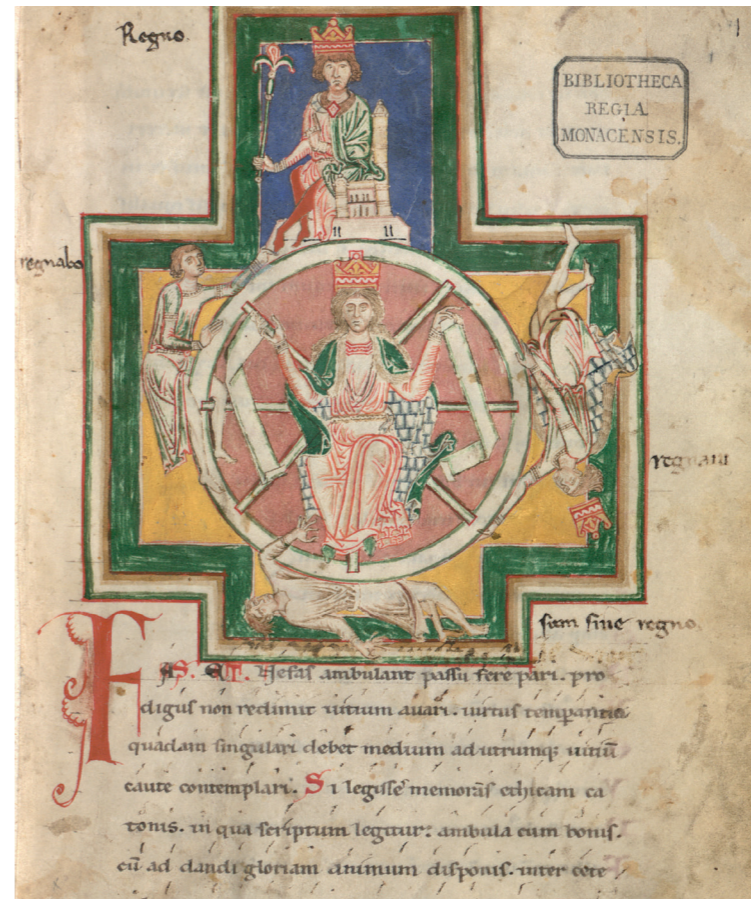 Regno.
1
BIBLIOTHECA
REGIA
MONACENSIS.
regnabo
regnaui
sum sine regno
FAS. ET. Nefas ambulant passu fere pari. pro
digus non redimit uitium auari. uirtus temperantia
quadam singulari debet medium ad utrumq; uitiū
caute contemplari. Si legisse memorās ethicam ca
tonis. in qua scriptum legitur: ambula cum bonis.
cū ad dandi gloriam animum disponis. inter cete